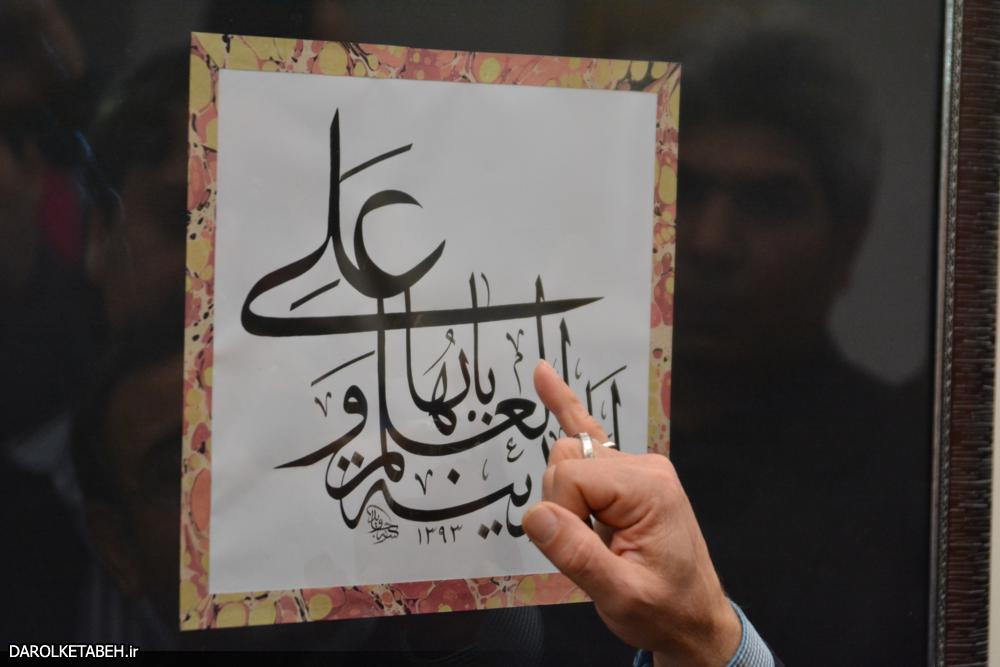 العلم و
علی
بابها
۱۳۹۳
DAROLKETABEH.ir